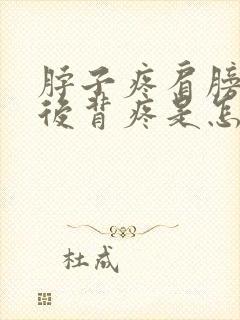 脖子疼肩膀
后背疼是怎
杜成